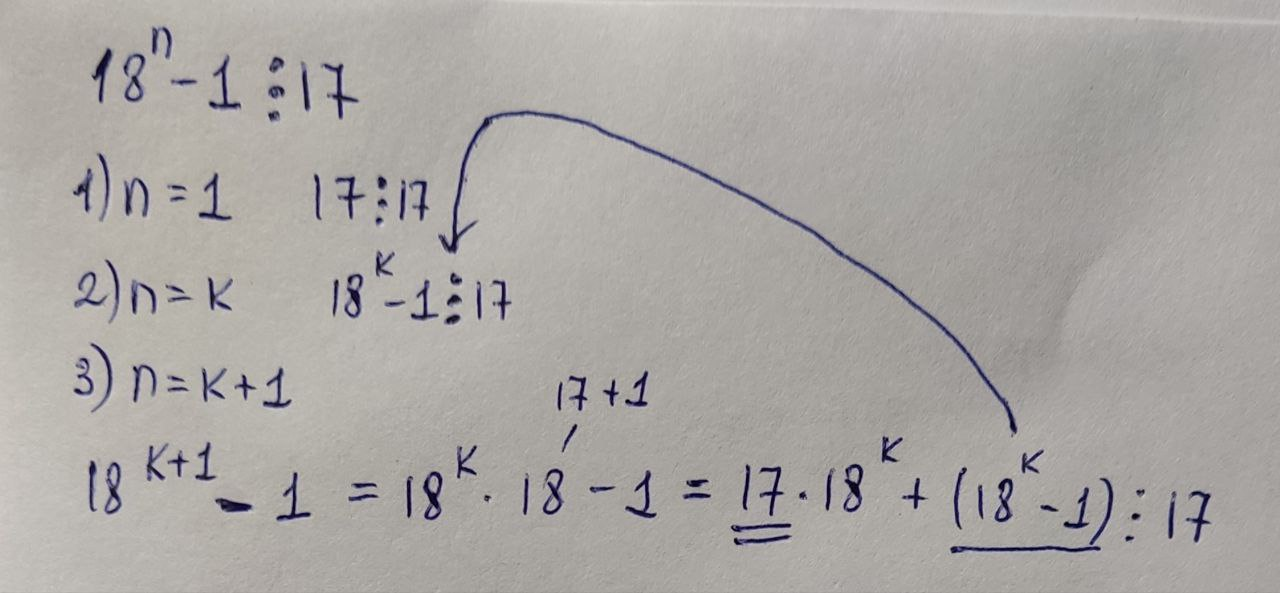 18ⁿ - 1 ⋮ 17
1) n = 1 17 ⋮ 17
2) n = k 18ᵏ - 1 ⋮ 17
3) n = k + 1
17 + 1
18ᵏ⁺¹ - 1 = 18ᵏ · 18 - 1 = 17 · 18ᵏ + (18ᵏ - 1) ⋮ 17